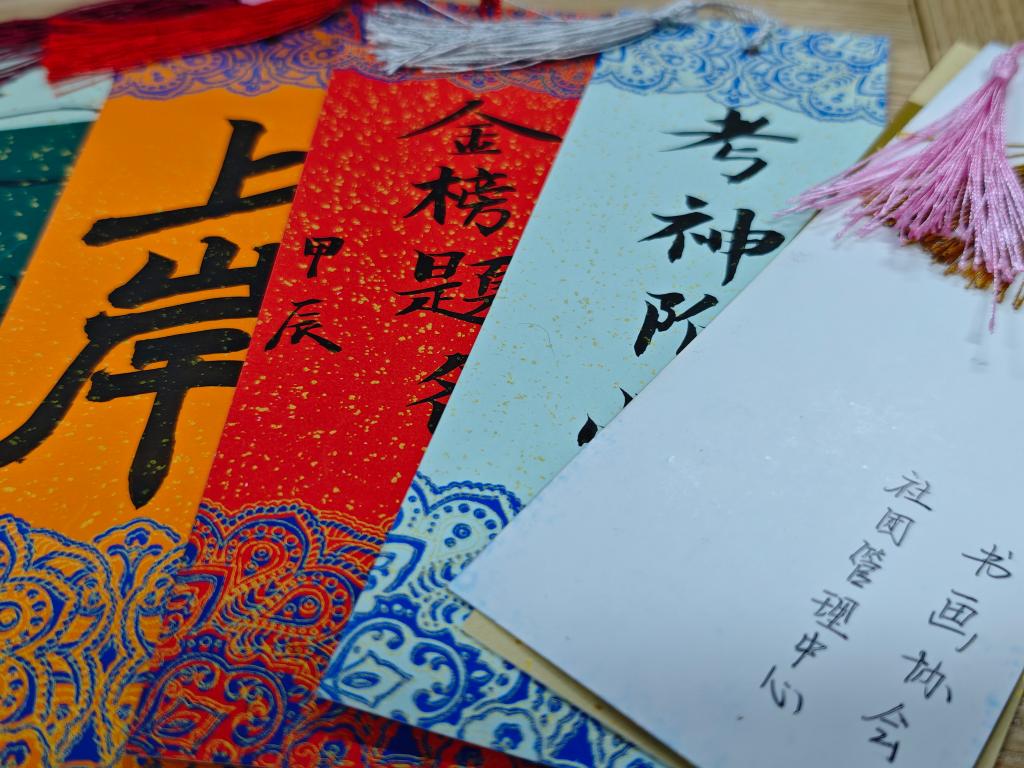 上岸
金榜题名
甲辰
考神附
书画协会
社团管理中心